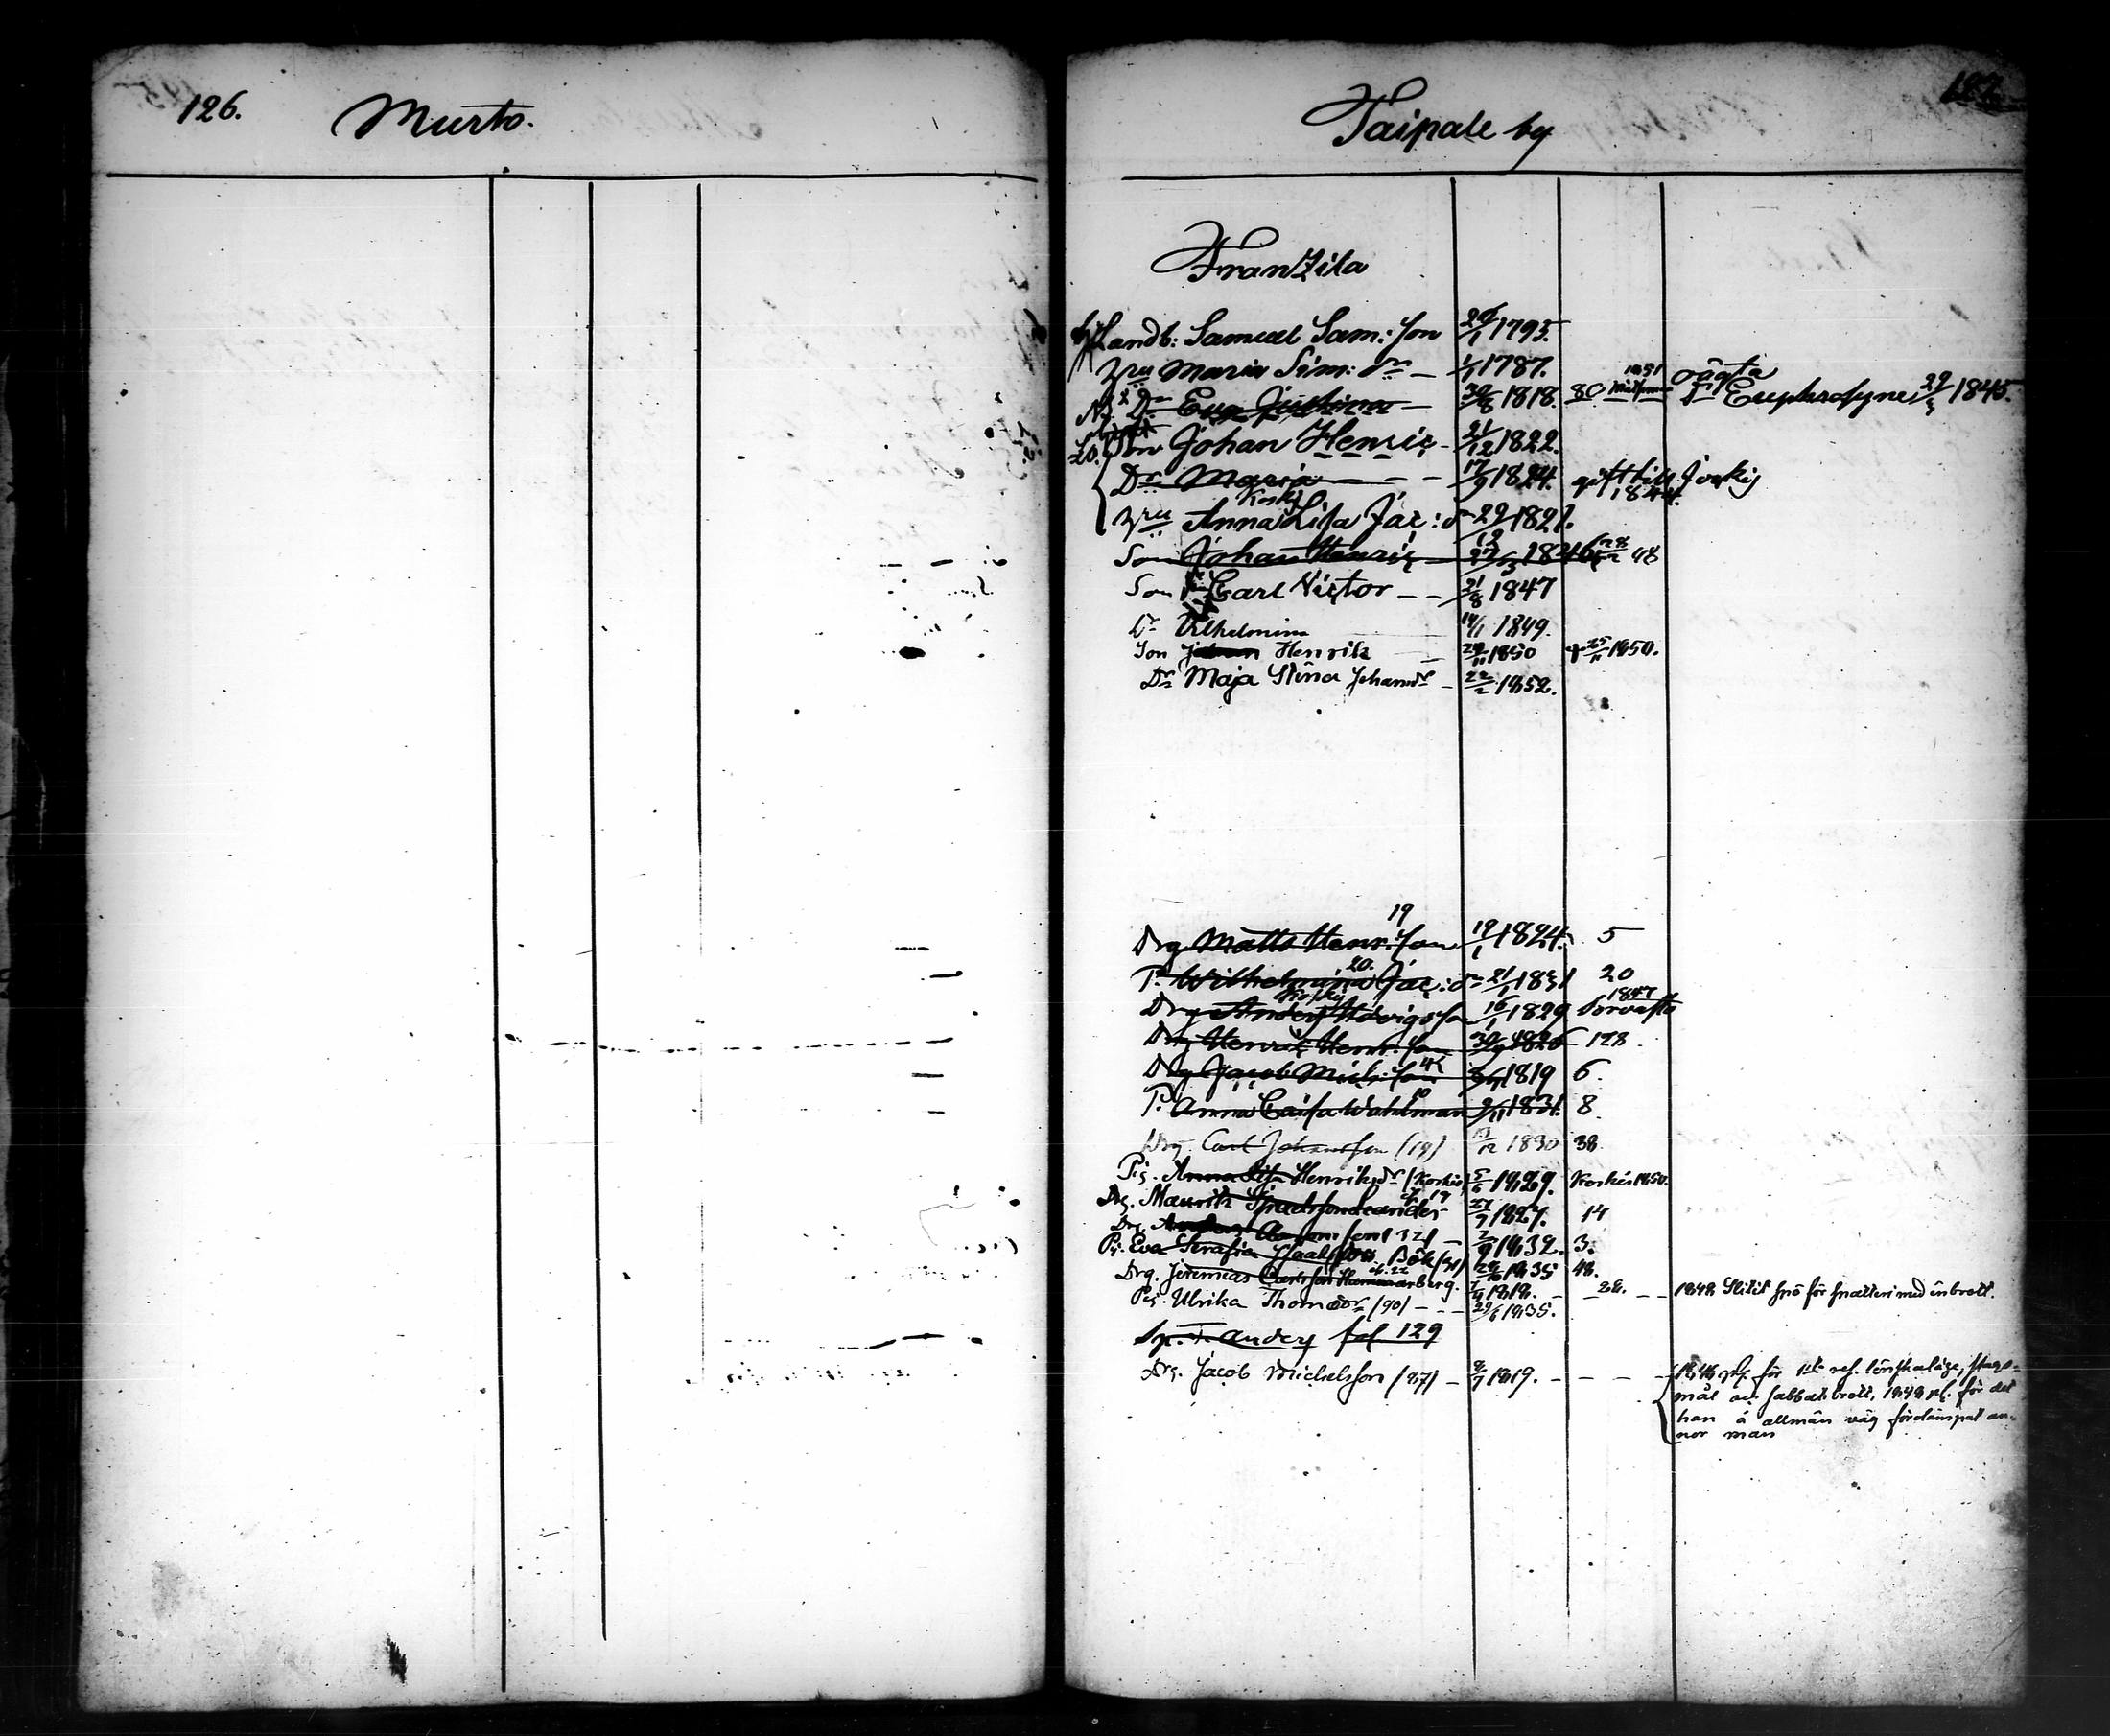 126.
Murto.
127.
Taipale by
Franzila
Landb: Samuel Sam: son 20/1 1795.
Hru Maria Sim: dr 1/1 1787.
Dr Eva Justina 30/8 1818. 80 1851
oägta
Dr Euphrosyne 29/3 1845.
Son Johan Henric 21/12 1822.
Dr Maria 17/9 1824. gift till Joskij
1844.
Kosk
Hru Anna Lisa Jac: dr 29/12 1821.
Son Johan Henric 27/3 1846 48
Son Carl Victor 21/8 1847
Dr Vilhelmina 14/1 1849.
Son Johan Henrik 24/11 1850 † 25/11 1850.
Dr Maja Stina Johansdr 22/2 1852.
19
Drg Matts Henr: son 19/1 1824. 5
20.
P. Wilhelmina Jac: dr 21/1 1831 20
1847
Drg Anders Hdvigsson 16/1 1829
Drg Henric Henr: son 30/9 1826 128
Drg Jacob Mich: son 1819 6.
P. Anna Caisa Wahlman 9/11 1831. 8
Drg. Carl Johansson (19) 1830 38
Pig. Anna Lisa Henriksdr (Koskis) 5/6 1829. Koskis 1850.
Drg. Maurits Israelsson Leander 19 27/9 1827. 14
Drg. Anders (32) 2/9 1832. 3.
Pig. Eva Serafia Bök (31) 24/6 1835 48.
Drg. Jeremias Carlsson Hammarberg. 22 1818. 26. 1848 Slitit spö för snatteri med inbrott.
Pig. Ulrika Thomasdr (90) 29/6 1835.
Sp. T. Anders fol 129
Drg. Jacob Michelsson (87) 8/7 1819. 1846 pl. för 1sta res. lönskaläge, slags-
mål och sabbatsbrott, 1848 pl. för det
han å allmän väg förolämpat an-
nor man